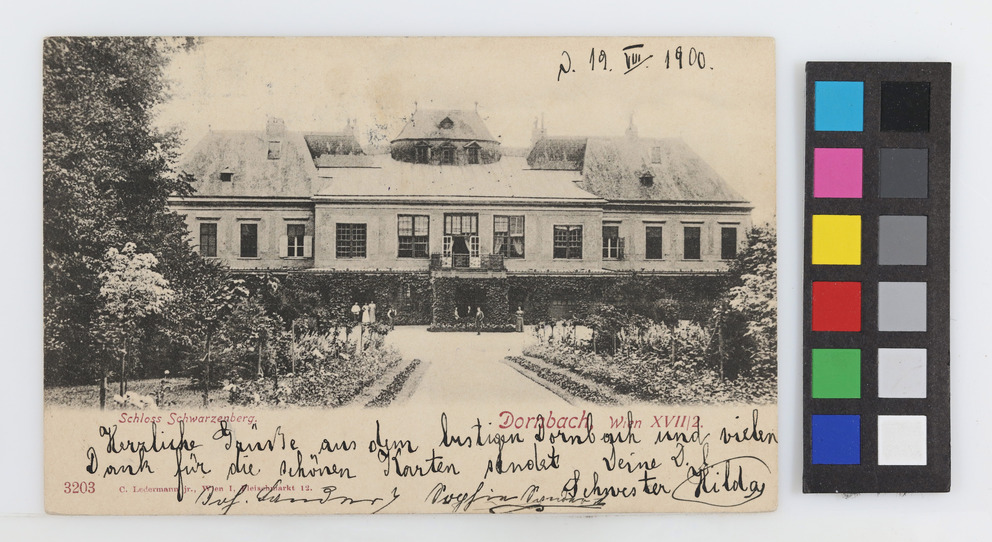 D. 19. VIII. 1900.
Schloss Schwarzenberg.
Dornbach Wien XVII|2.
Herzliche Grüße aus dem lustigen Dornbach und vielen
Dank für die schönen Karten sendet Deine D. l.
Schwester Hilda
3203 C. Ledermann jr., Wien I, Fleischmarkt 12.
Sophie